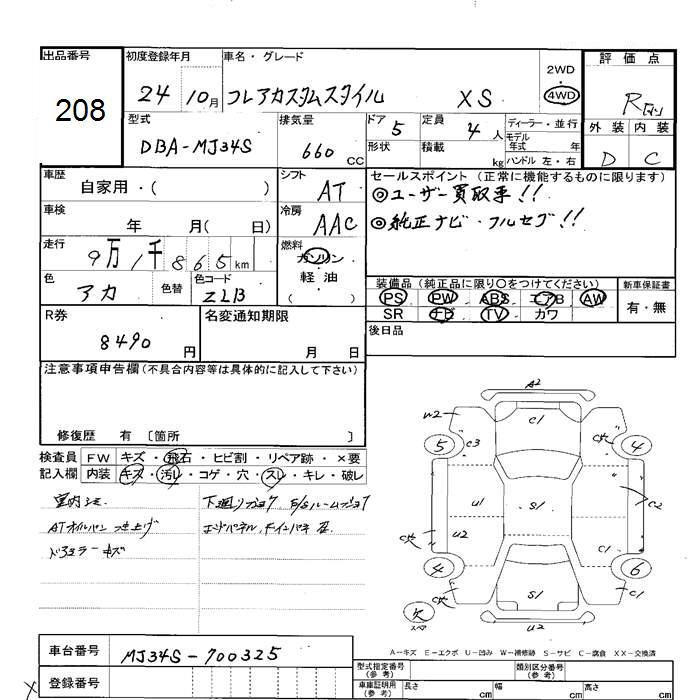 出品番号 初度登録年月 車名・グレード 評価点
208
24 10月 フレアカスタムスタイル XS
2WD
4WD
R
型式 排気量 ドア 定員 ディーラー・並行
DBA-MJ34S 660 CC 5 4人
形状 積載 kg
モデル年式 年
ハンドル 左・右
外装 内装
D C
車歴 シフト セールスポイント (正常に機能するものに限ります)
自家用・( ) AT
◎ユーザー買取車!!
車検 冷房
年 月( 日) AAC
◎純正ナビ・フルセグ!!
走行 燃料
9万1千865km
ガソリン
軽油
( )
色 色替 色コード
アカ ZLB
装備品(純正品に限り○をつけてください) 新車保証書
PS PW ABS エアB AW
SR TV カワ
有・無
R券 名変通知期限 後日品
8490円
月 日
注意事項申告欄(不具合内容等は具体的に記入して下さい)
修復歴 有 〔箇所 〕
検査員 FW キズ・飛石・ヒビ割・リペア跡・×要
記入欄 内装 キズ・汚レ・コゲ・穴・スレ・キレ・破レ
室内
ATオイルパン
ドアミラーキズ
下廻り
エンドパネル
A2
W2 C1
5 C3 4
U1 S1 C2
U2
C1
4 6
S1 C1
U2
欠
スペア
A-キズ E-エクボ U-凹み W-補修跡 S-サビ C-腐食 XX-交換済
車台番号 MJ34S-700325
登録番号
型式指定番号(参考) 類別区分番号(参考)
車庫証明用(参考) 長さ cm 幅 cm 高さ cm